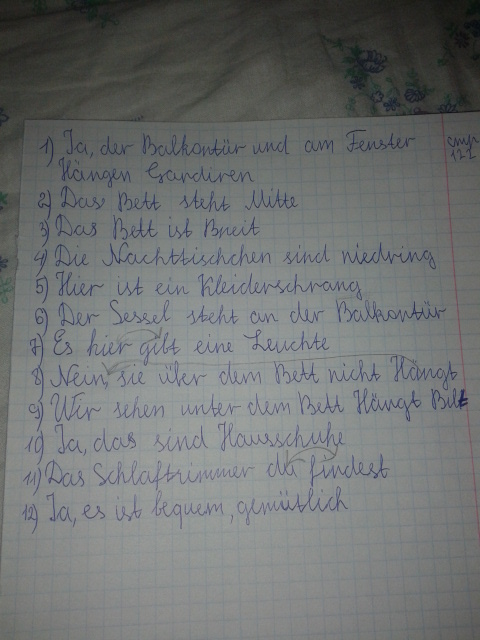 стр 121
1) Ja, der Balkontür und am Fenster
Hängen Gardinen.
2) Das Bett steht Mitte
3) Das Bett ist Breit
4) Die Nachttischchen sind niedring
5) Hier ist ein Kleiderschrang
6) Der Sessel steht an der Balkontür
7) Es hier gibt eine Leuchte
8) Nein, sie über dem Bett nicht Hängt
9) Wir sehen unter dem Bett Hängt
10) Ja, das sind Hausschuhe
11) Das Schlafzimmer du findest
12) Ja, es ist bequem, gemütlich